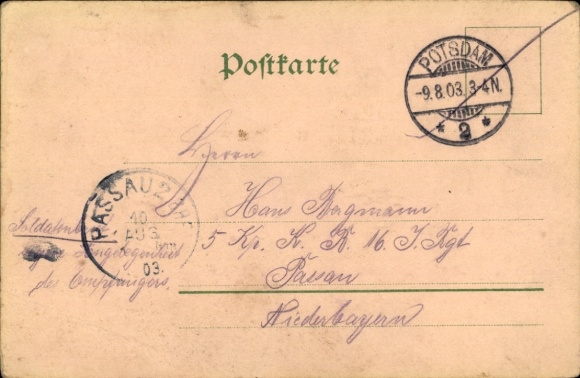 Postkarte
POTSDAM
-9.8.03. 3-4N.
* 2 *
Herrn
PASSAU 2
10
AUG
03.
Hans Bagmann
5 Kp. K. B. 16. I. Rgt
Passau
Niederbayern
Soldatenbr
Angelegenheit
des Empfängers.